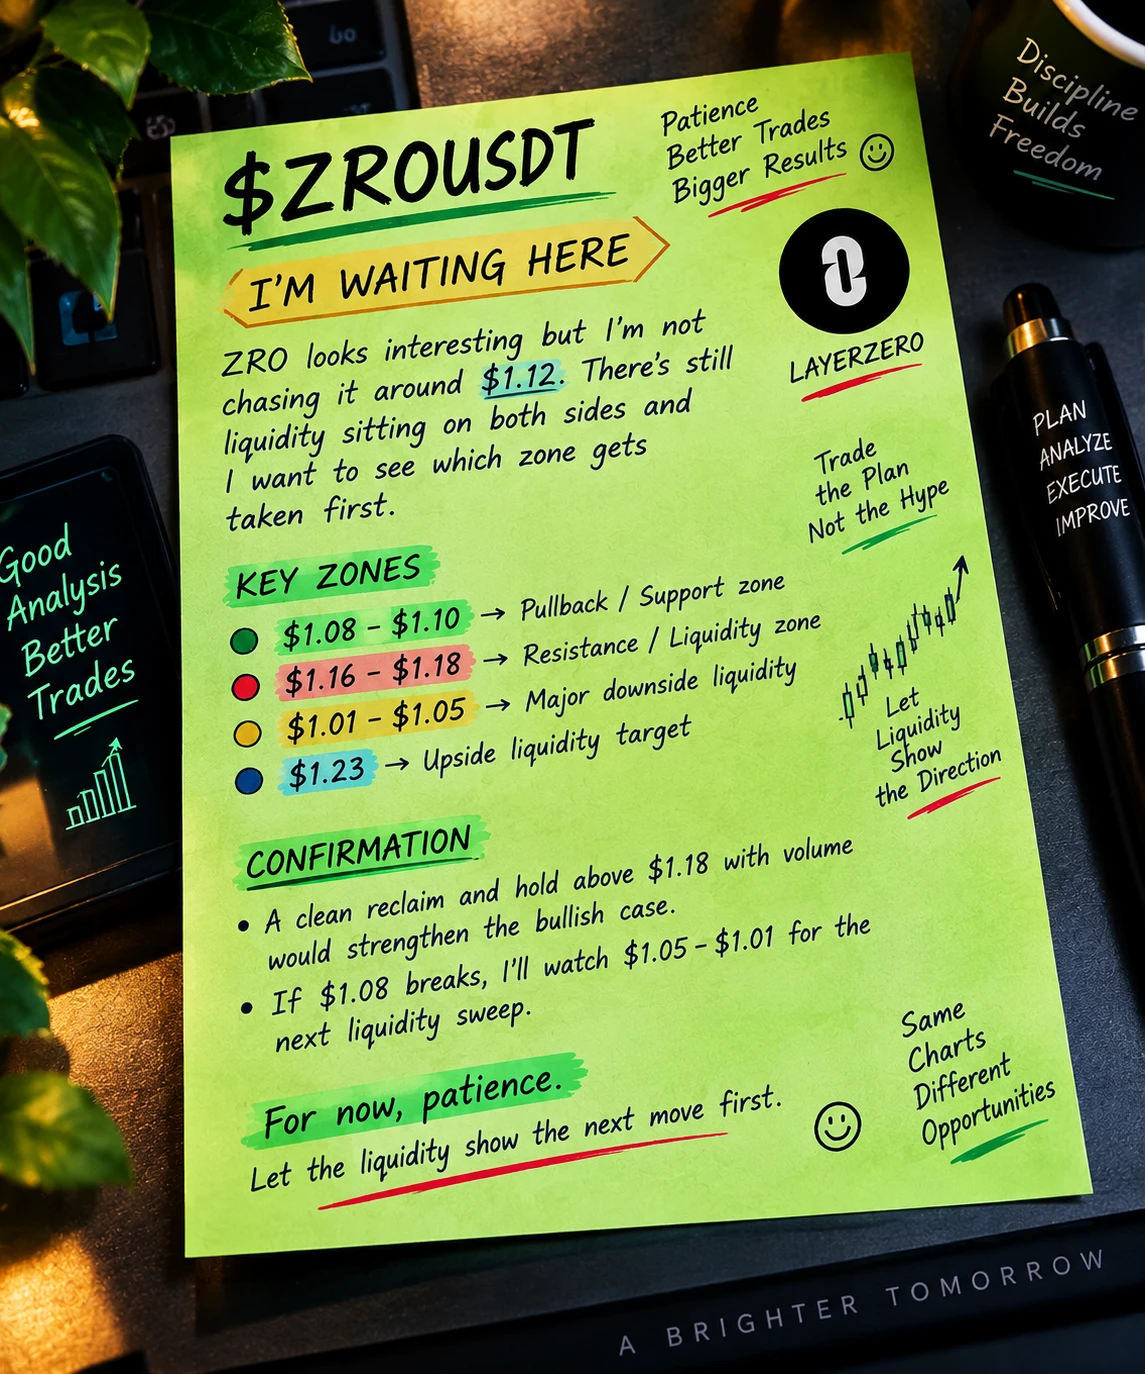 $ZROUSDT
Patience
Better Trades
Bigger Results
I'M WAITING HERE
LAYERZERO
ZRO looks interesting but I'm not
chasing it around $1.12. There's still
liquidity sitting on both sides and
I want to see which zone gets
taken first.
Trade
the Plan
Not the Hype
KEY ZONES
$1.08 – $1.10 → Pullback / Support zone
$1.16 – $1.18 → Resistance / Liquidity zone
$1.01 – $1.05 → Major downside liquidity
$1.23 → Upside liquidity target
Let
Liquidity
Show
the Direction
CONFIRMATION
• A clean reclaim and hold above $1.18 with volume
would strengthen the bullish case.
• If $1.08 breaks, I'll watch $1.05 – $1.01 for the
next liquidity sweep.
For now, patience.
Let the liquidity show the next move first.
Same
Charts
Different
Opportunities
Discipline
Builds
Freedom
PLAN
ANALYZE
EXECUTE
IMPROVE
Good
Analysis
Better
Trades
A BRIGHTER TOMORROW